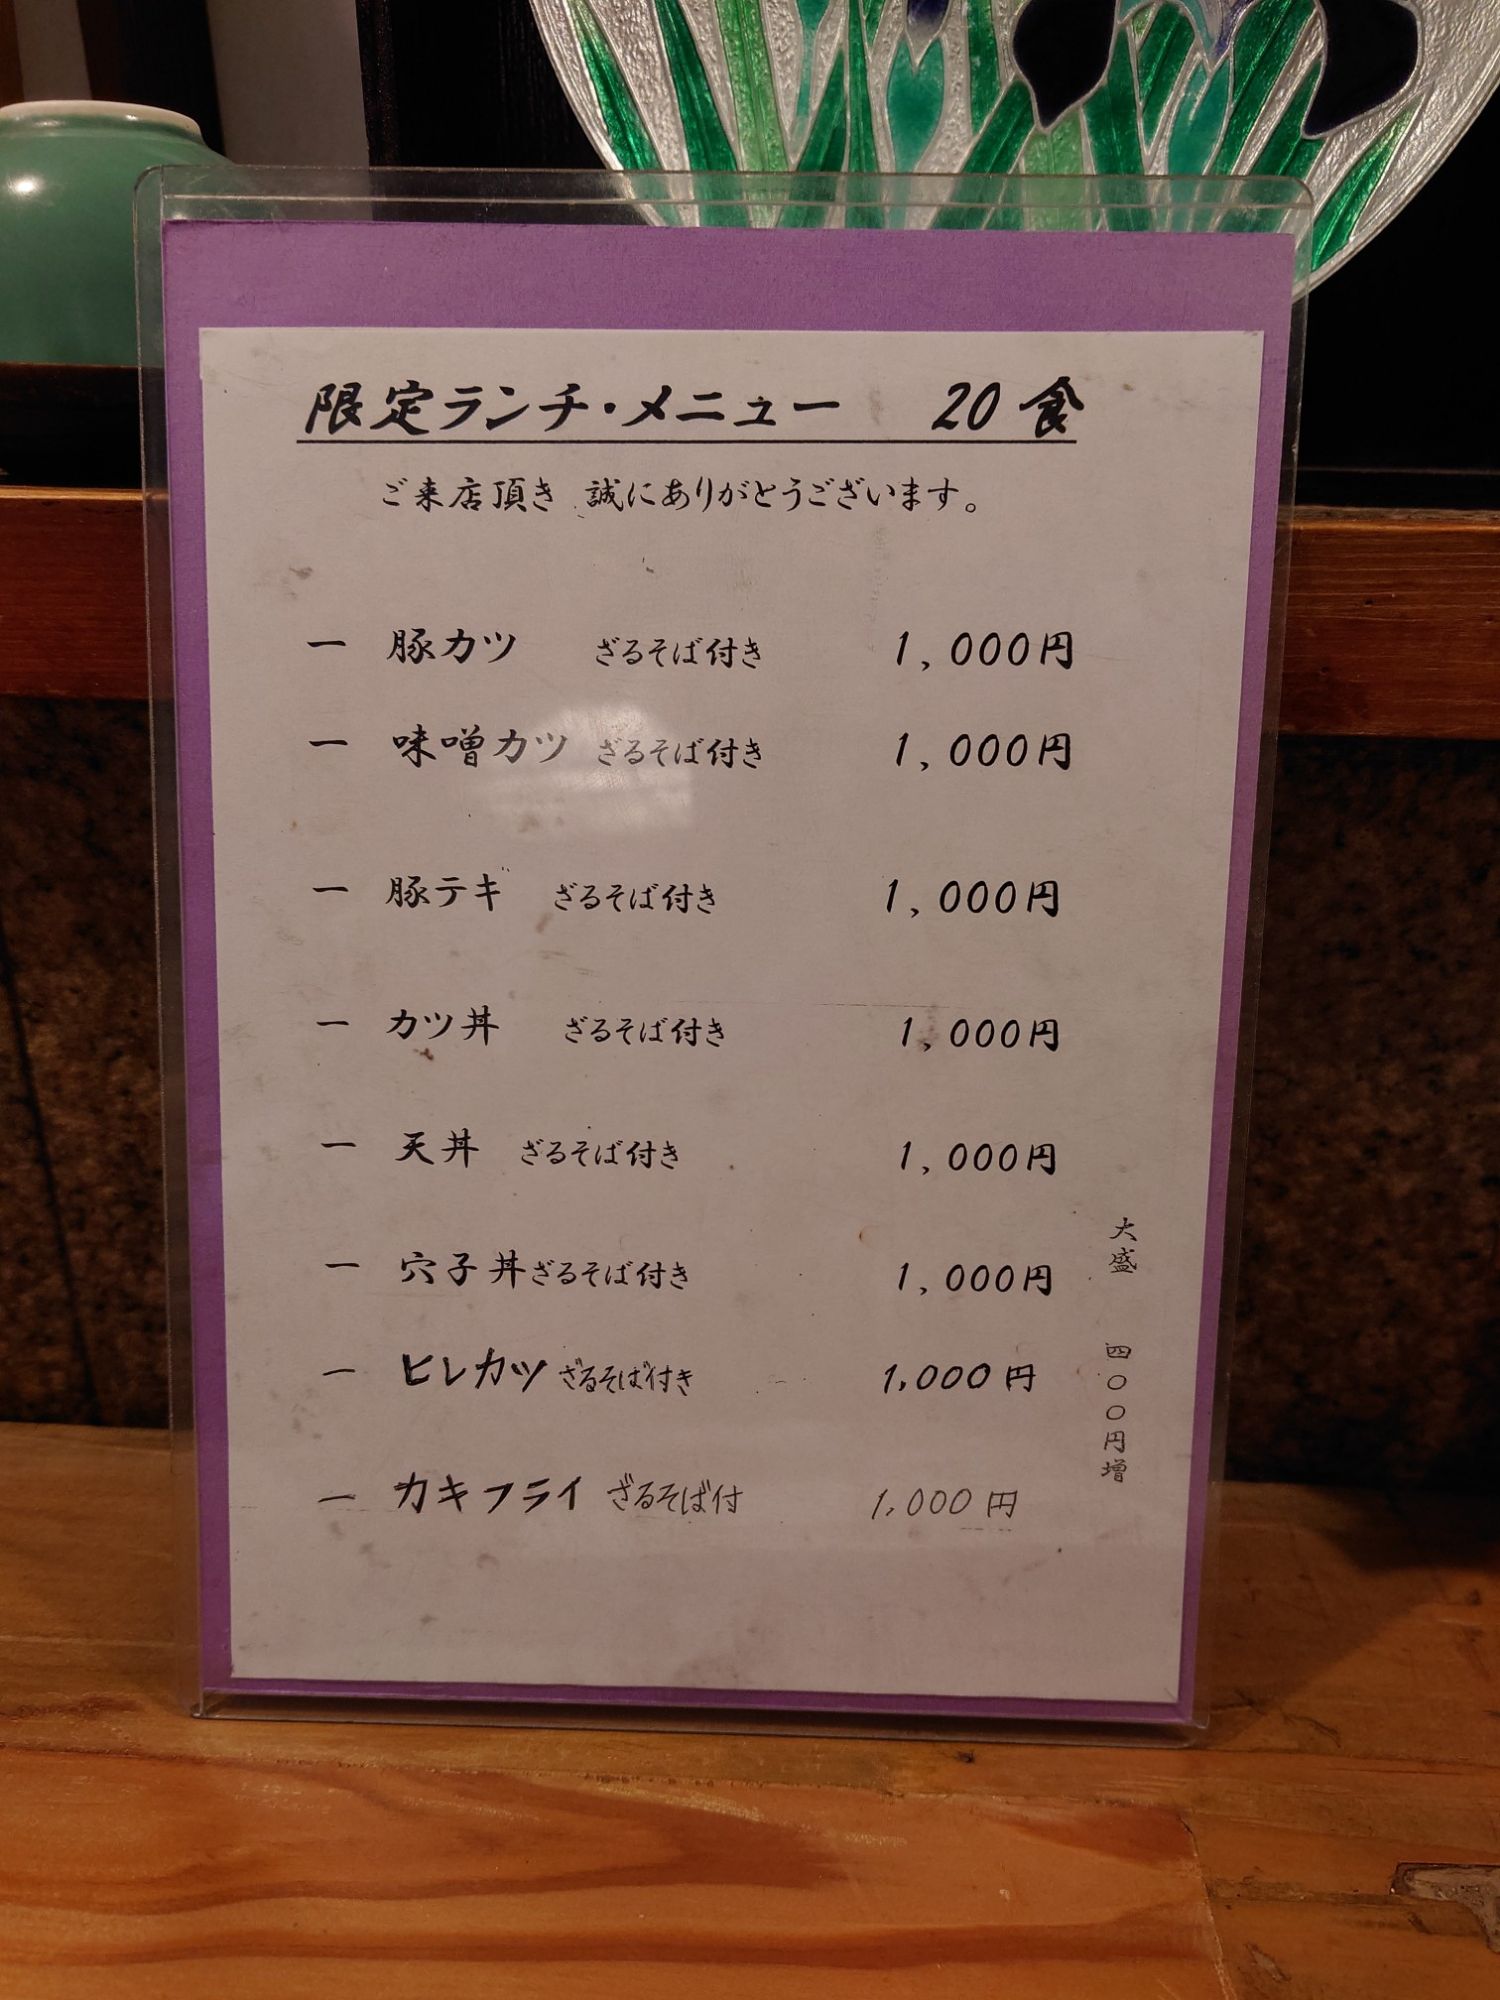 限定ランチ・メニュー 20食
ご来店頂き 誠にありがとうございます。
一 豚カツ ざるそば付き 1,000円
一 味噌カツ ざるそば付き 1,000円
一 豚テキ ざるそば付き 1,000円
一 カツ丼 ざるそば付き 1,000円
一 天丼 ざるそば付き 1,000円
一 穴子丼ざるそば付き 1,000円
一 ヒレカツ ざるそば付き 1,000円
一 カキフライ ざるそば付 1,000円
大盛 四〇〇円増